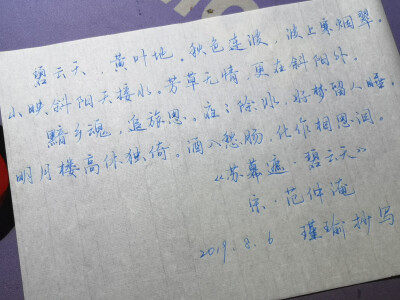 碧云天，黄叶地。秋色连波，波上寒烟翠。
小映斜阳天接水。芳草无情，更在斜阳外。
黯乡魂，追旅思。夜夜除非，好梦留人睡。
明月楼高休独倚。酒入愁肠，化作相思泪。
《苏幕遮·碧云天》
宋·范仲淹
2019.8.6 瑾瑜抄写